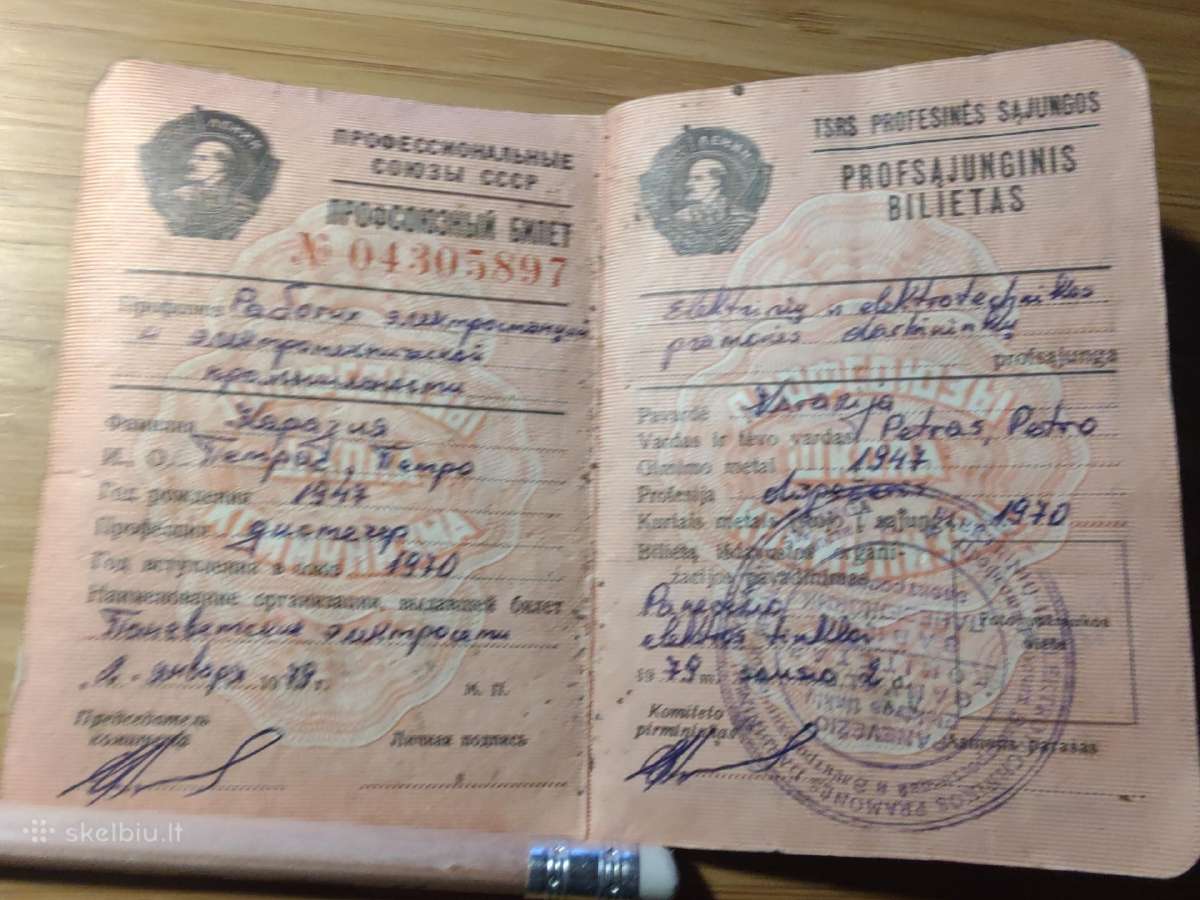 ПРОФЕССИОНАЛЬНЫЕ
СОЮЗЫ СССР
ПРОФСОЮЗНЫЙ БИЛЕТ
№ 04305897
Профсоюз Рабочих электростанций
и электротехнической
промышленности
Фамилия Каразия
И. О. Петрас, Петро
Год рождения 1947
Профессия
Год вступления в союз 1970
Наименование организации, выдавшей билет
Паневежские электросети
января 1979 г.
М. П.
Председатель
комитета
Личная подпись
ЛЕНИН
TSRS PROFESINĖS SĄJUNGOS
PROFSĄJUNGINIS
BILIETAS
Elektrinių ir elektrotechnikos
pramonės darbininkų
profsąjunga
Pavardė Karazija
Vardas ir tėvo vardas Petras, Petro
Gimimo metai 1947
Profesija
Kuriais metais įstojo į sąjungą 1970
Bilietą išdavusios organi-
zacijos pavadinimas
Panevėžio
elektros tinklai
1979 m. sausio 2 d.
Fotografijos
vieta
Komiteto
pirmininkas
Asmens parašas
skelbiu.lt